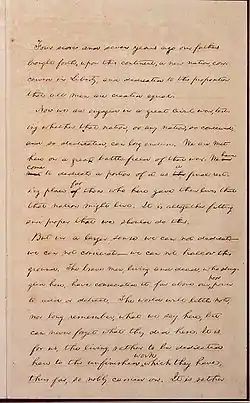 Four score and seven years ago our fathers
brought forth, upon this continent, a new nation, con-
ceived in Liberty, and dedicated to the proposition
that all men are created equal.
Now we are engaged in a great civil war, test-
ing whether that nation, or any nation, so conceived,
and so dedicated, can long endure. We are met
here on a great battle-field of that war. We have
come to dedicate a portion of it as final rest-
ing place for those who here gave their lives that
that nation might live. It is altogether fitting
and proper that we should do this.
But in a larger sense we can not dedicate—
we can not consecrate—we can not hallow this
ground. The brave men, living and dead, who strug-
gled here, have consecrated it far above our poor
power to add or detract. The world will little note,
nor long remember, what we say here, but
can never forget what they did here. It is
for us, the living, rather to be dedicated
here to the unfinished work which they have,
thus far, so nobly carried on. It is rather